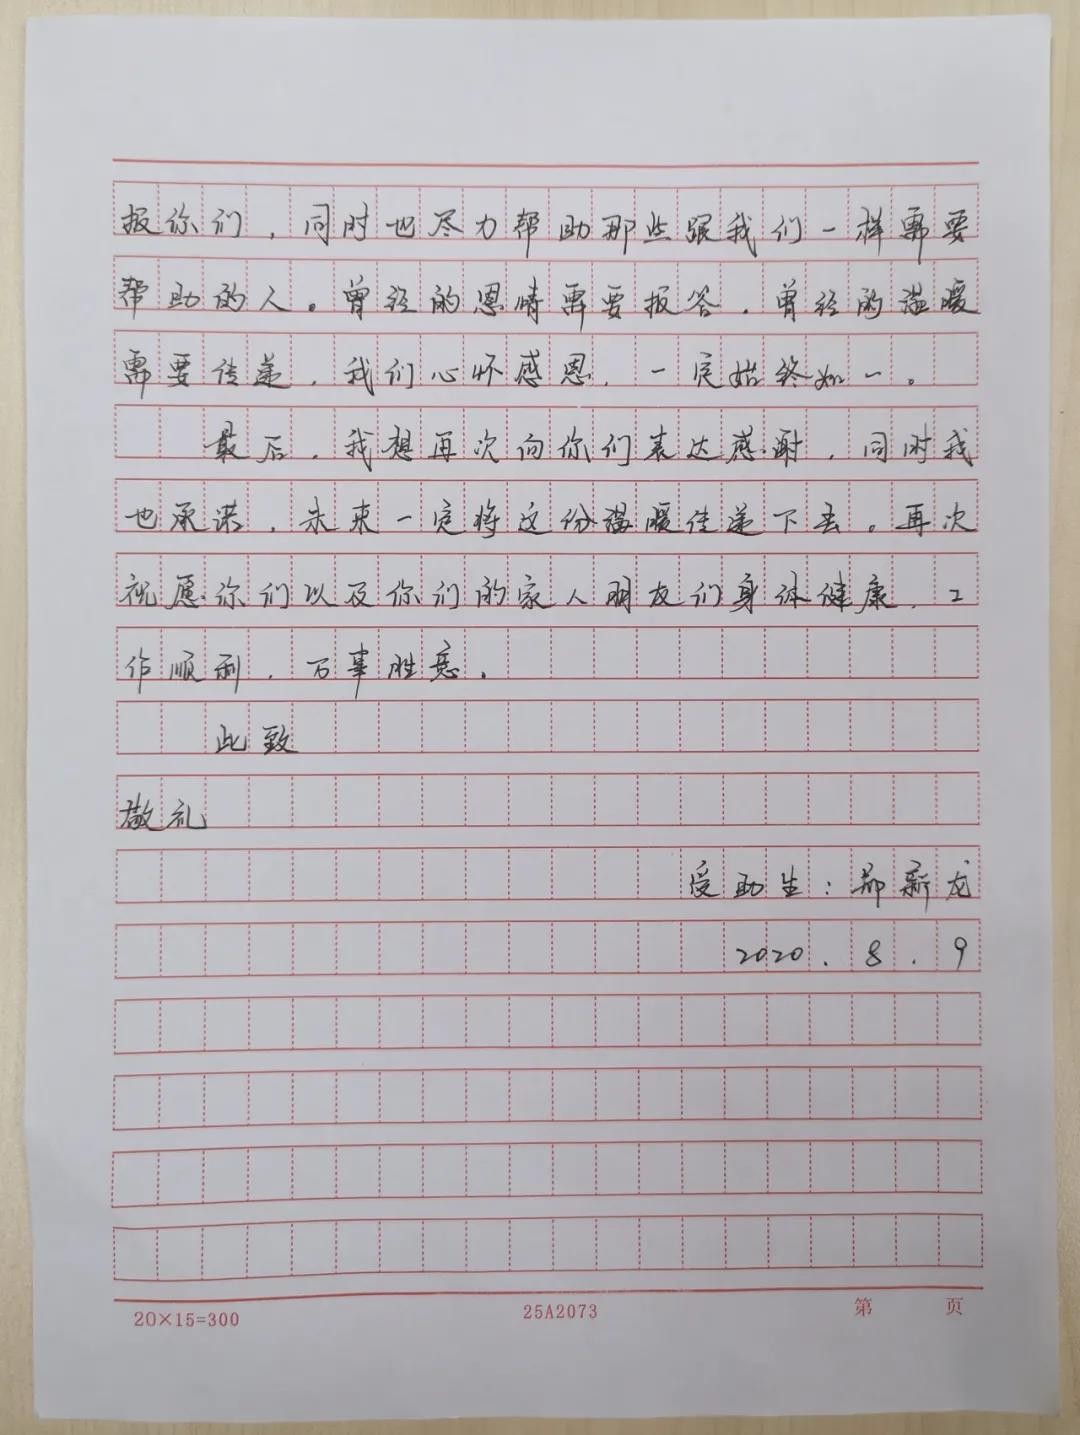 报你们，同时也尽力帮助那些跟我们一样需要
帮助的人。曾经的恩情需要报答，曾经的温暖
需要传递，我们心怀感恩，一定始终如一。
最后，我想再次向你们表达感谢，同时我
也承诺，未来一定将这份温暖传递下去。再次
祝愿你们以及你们的家人朋友们身体健康，工
作顺利，万事胜意。
此致
敬礼
受助生：新龙
2020.8.9
20×15=300 25A2073 第 页